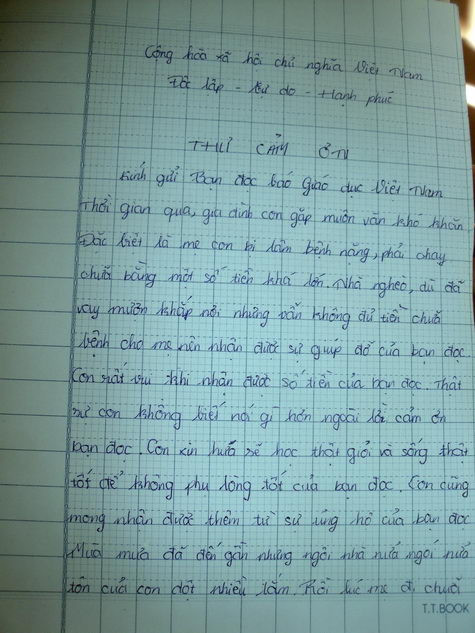 Cộng hoà xã hội chủ nghĩa Việt Nam
Độc lập - tự do - Hạnh phúc
THƯ CẢM ƠN
Kính gửi Bạn đọc báo Giáo dục Việt Nam
Thời gian qua, gia đình con gặp muôn vàn khó khăn
Đặc biệt là mẹ con bị lâm bệnh nặng, phải chạy
chữa bằng một số tiền khá lớn. Nhà nghèo, dù đã
vay mượn khắp nơi nhưng vẫn không đủ tiền chữa
bệnh cho mẹ nên nhận được sự giúp đỡ của bạn đọc
Con rất vui khi nhận được số tiền của bạn đọc. Thật
sự con không biết nói gì hơn ngoài lời cảm ơn
bạn đọc. Con xin hứa sẽ học thật giỏi và sống thật
tốt để không phụ lòng tốt của bạn đọc. Con cũng
mong nhận được thêm từ sự ủng hộ của bạn đọc
Mùa mưa đã đến gần nhưng ngôi nhà nửa ngói nửa
tôn của con dột nhiều lắm. Rồi lúc mẹ đi chữa
T.T.BOOK